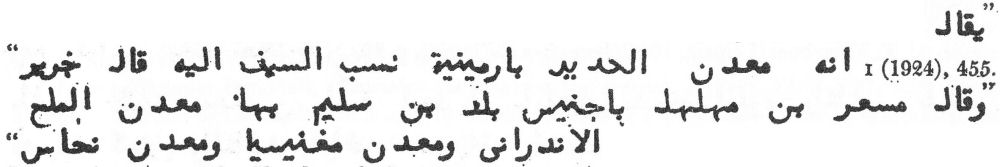 "يقال
1 (1924), 455. انه معدن الحديد بارمينية نسب السيف اليه قال جرير"
"وقال مسعر بن مهلهل باجنيس بلد بن سليم بها معدن الملح
الاندرانى ومعدن مغنيسيا ومعدن نحاس"